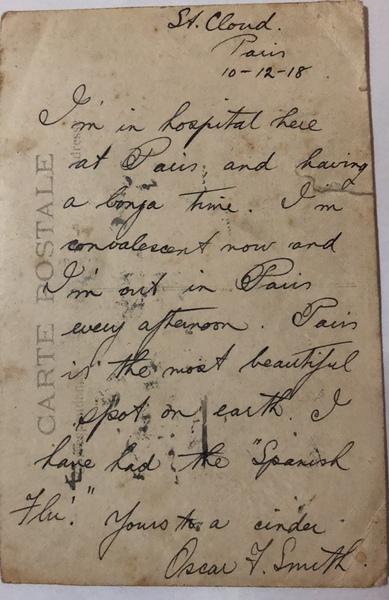 St. Cloud.
Paris
10-12-18
I'm in hospital here
at Paris and having
a bonza time. I'm
convalescent now and
I'm out in Paris
every afternoon. Paris
is the most beautiful
spot on earth. I
have had the "Spanish
Flu'." Yours to a cinder
Oscar F. Smith.
CARTE POSTALE